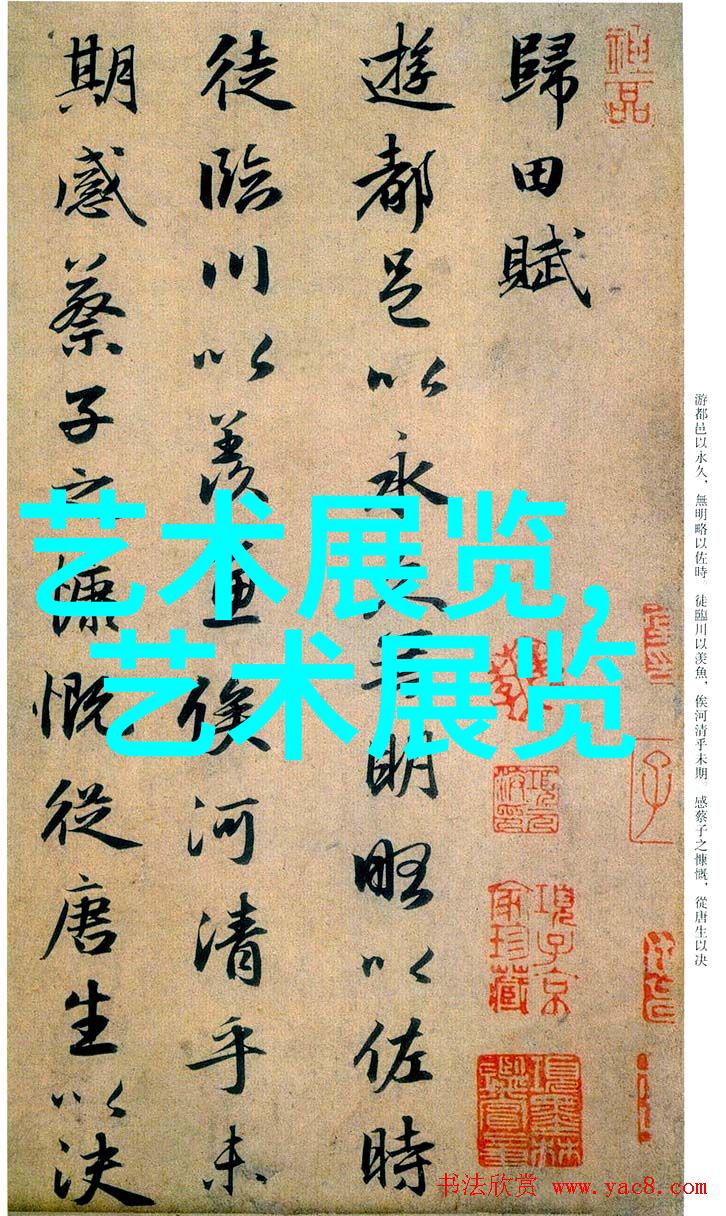 歸田賦
遊都邑以永久無明略以佐時
徒臨川以羨魚俟河清乎未
期感蔡子之慷慨從唐生以決
艺术展览,
艺术展览
游都邑以永久,無明略以佐時。徒臨川以羡魚,俟河清乎未期。感蔡子之慷慨,從唐生以决
項子京
家珍藏
项墨林
鑑賞章
子
书法欣赏 www.yac8.com